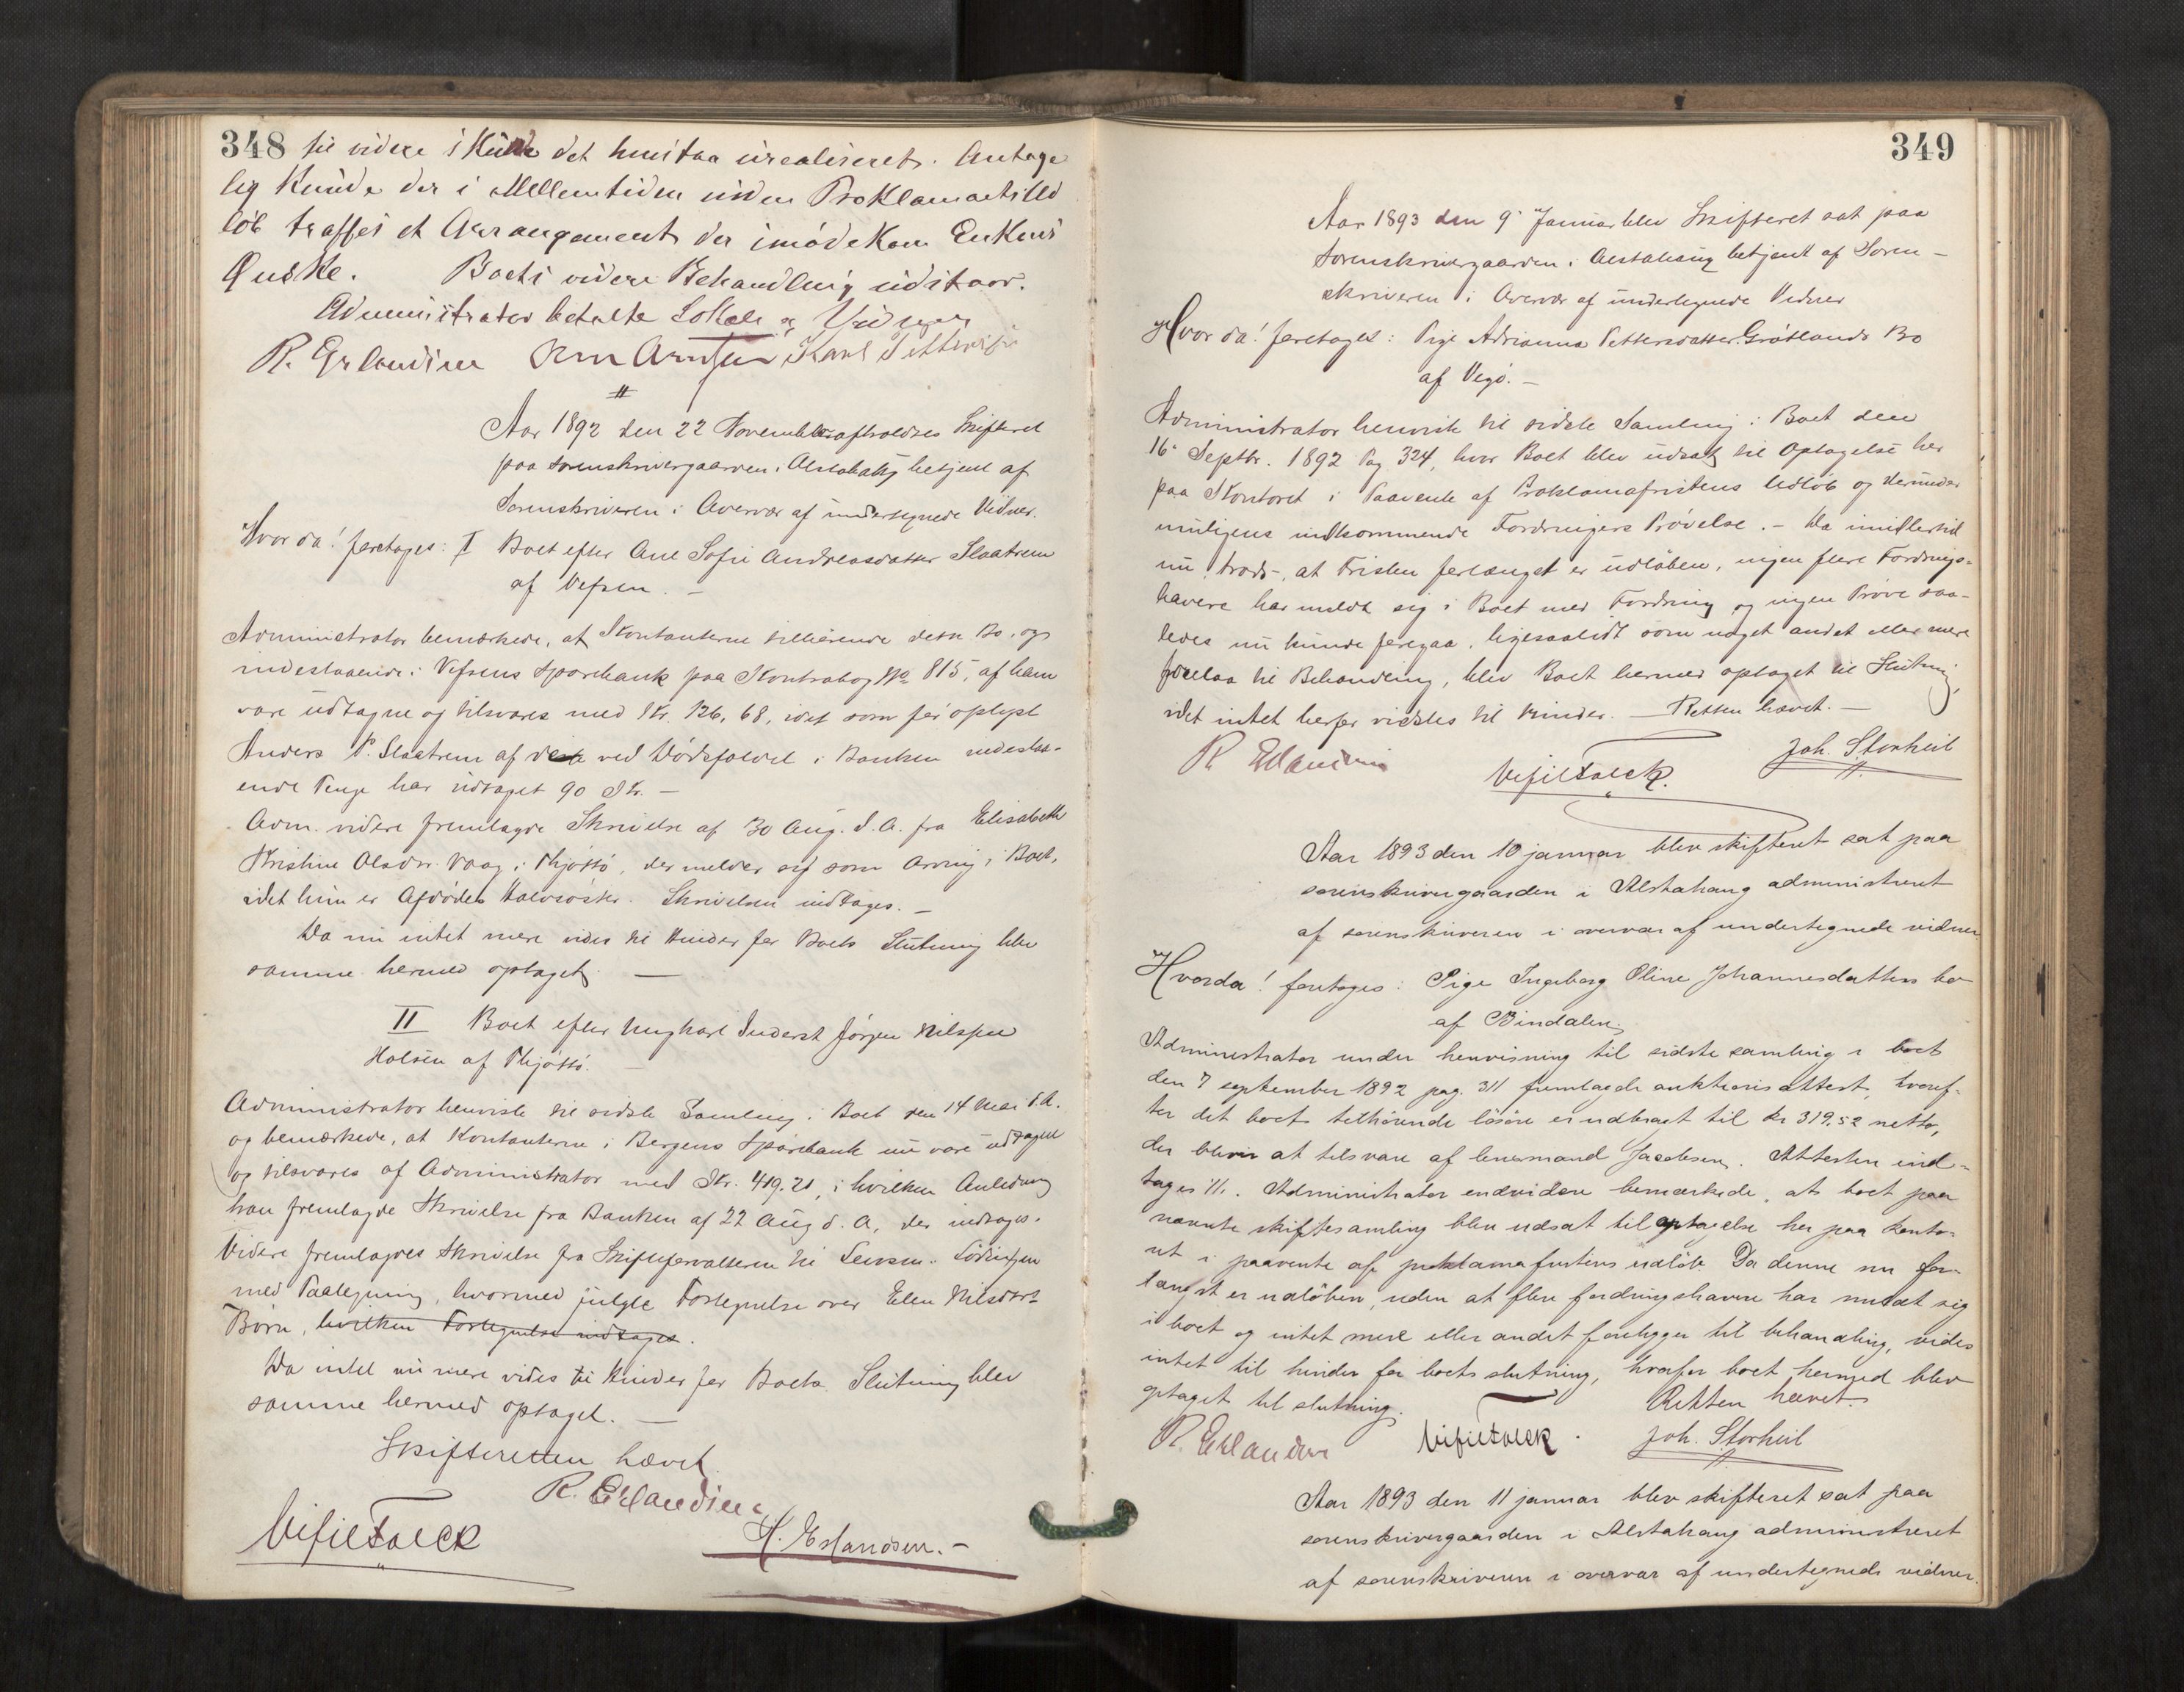 348 til videre i Kunde det henstaa urealiseret. Antage
lig Kunde der i Mellemtiden inden Proklamaets Ud
löb træffes et Arrangement der imödekom Enkens
Önske. Boets videre Behandling udstaar.
Administrator betalte Lokale og Vidner
R. Erlandsen Arntsen Karl Pettersen
Aar 1892 den 22 November afholdtes Skifteret
paa Sorenskrivergaarden i Alstahaug betjent af
Sorenskriveren i Overvær af undertegnede Vidner.
Hvor da! foretoges: I Boet efter Ane Sofie Andreasdatter Slaatrem
af Vefsen. –
Administrator bemærkede, at Kontanterne tilhörende dette Bo, og
indestaaende i Vefsens Sparebank paa Kontrabog No 815, af ham
vare udtagne og tilsvares med Kr. 126,68, idet som för oplyst
Anders P. Slaatrem af de ved Dödsfaldet i Banken indestaa-
ende Penge har udtaget 90 Kr. –
Adm. videre fremlagde Skrivelse af 30 Aug. d. A. fra Elisabeth
Kristine Olsdr. Vaag i Thjöttö, der melder sig som Arving i Boet,
idet hun er Afdödes Halvsöster. Skrivelsen indtages. –
Da nu intet mere vides til Hinder for Boets Slutning blev
samme hermed optaget. –
II Boet efter Ungkarl Inderst Jörgen Nilssen
Holsen af Thjöttö. –
Administrator henviste til sidste Samling i Boet den 14 Mai d. A.
og bemærkede, at Kontanterne i Bergens Sparebank nu vare udtagne
og tilsvares af Administrator med Kr. 419.21, i hvilken Anledning
han fremlagde Skrivelse fra Banken af 22 Aug d. A, der indtages.
Videre fremlagdes Skrivelse fra Skifteforvalteren til Lensm. Lödingen
med Paategning, hvormed fulgte Fortegnelse over Elen Nilsdatt
Börn, hvilken Fortegnelse indtages.
Da intet nu mere vides til Hinder for Boets Slutning blev
samme hermed optaget. –
Skifteretten hævet.
R. Erlandsen
H. Erlandsen. –
349
Aar 1893 den 9' Januar blev Skifteret sat paa
Sorenskrivergaarden i Alstahaug betjent af Soren–
skriveren i Overvær af undertegnede Vidner
Hvor da! foretoges: Pige Adrianna Pettersdatter Grötlands Bo
af Vegö. –
Administrator henviste til sidste Samling i Boet den
16' Septbr. 1892 Pag 324, hvor Boet blev udsat til Optagelse her
paa Kontoret i Paavente af Proklamafristens Udlöb og derunder
muligens indkommende Fordringers Prövelse. – Da imidlertid
nu, trods, at Fristen forlængst er udlöben, ingen flere Fordrings-
havere har meldt sig i Boet med Fordring og ingen Pröve saa-
ledes nu kunde foregaa, ligesaalidt som noget andet eller mere
forelaa til Behandling, blev Boet hermed optaget til Slutning,
idet intet herfor vidstes til Hinder. – Retten hævet. –
R Erlandsen
Joh. Storheil
Aar 1893 den 10 januar blev skifteret sat paa
sorenskrivergaarden i Alstahaug administreret
af sorenskriveren i overvær af undertegnede vidner.
Hvorda! foretoges: Pige Ingeborg Oline Johannesdatters bo
af Bindalen.
Administrator under henvisning til sidste samling i boet
den 7 september 1892 pag. 311 fremlagde auktionsattest, hvoref-
ter det boet tilhörende lösöre er udbragt til kr 319,52 netto,
der bliver at tilsvare af lensmand Jacobsen. Attesten ind-
tages //. Administrator endvidere bemærkede, at boet paa
nævnte skiftesamling blev udsat til optagelse her paa konto-
ret i paavente af proklamafristens udlöb. Da denne nu for-
længst er udlöben, uden at flere fordringshavere har meldt sig
i boet og intet mere eller andet foreligger til behandling, vides
intet til hinder for boets slutning, hvorfor boet hermed blev
optaget til slutning. Retten hævet.
R. Erlandsen
Joh. Storheil
Aar 1893 den 11 januar blev skifteret sat paa
sorenskrivergaarden i Alstahaug administreret
af sorenskriveren i overvær af undertegnede vidner.